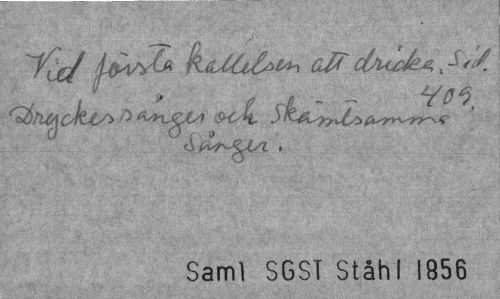 Vid första kallelsen att dricka. Sid.
409.
Dryckessånger och Skämtsamma
Sånger.
Saml SGST Ståhl 1856